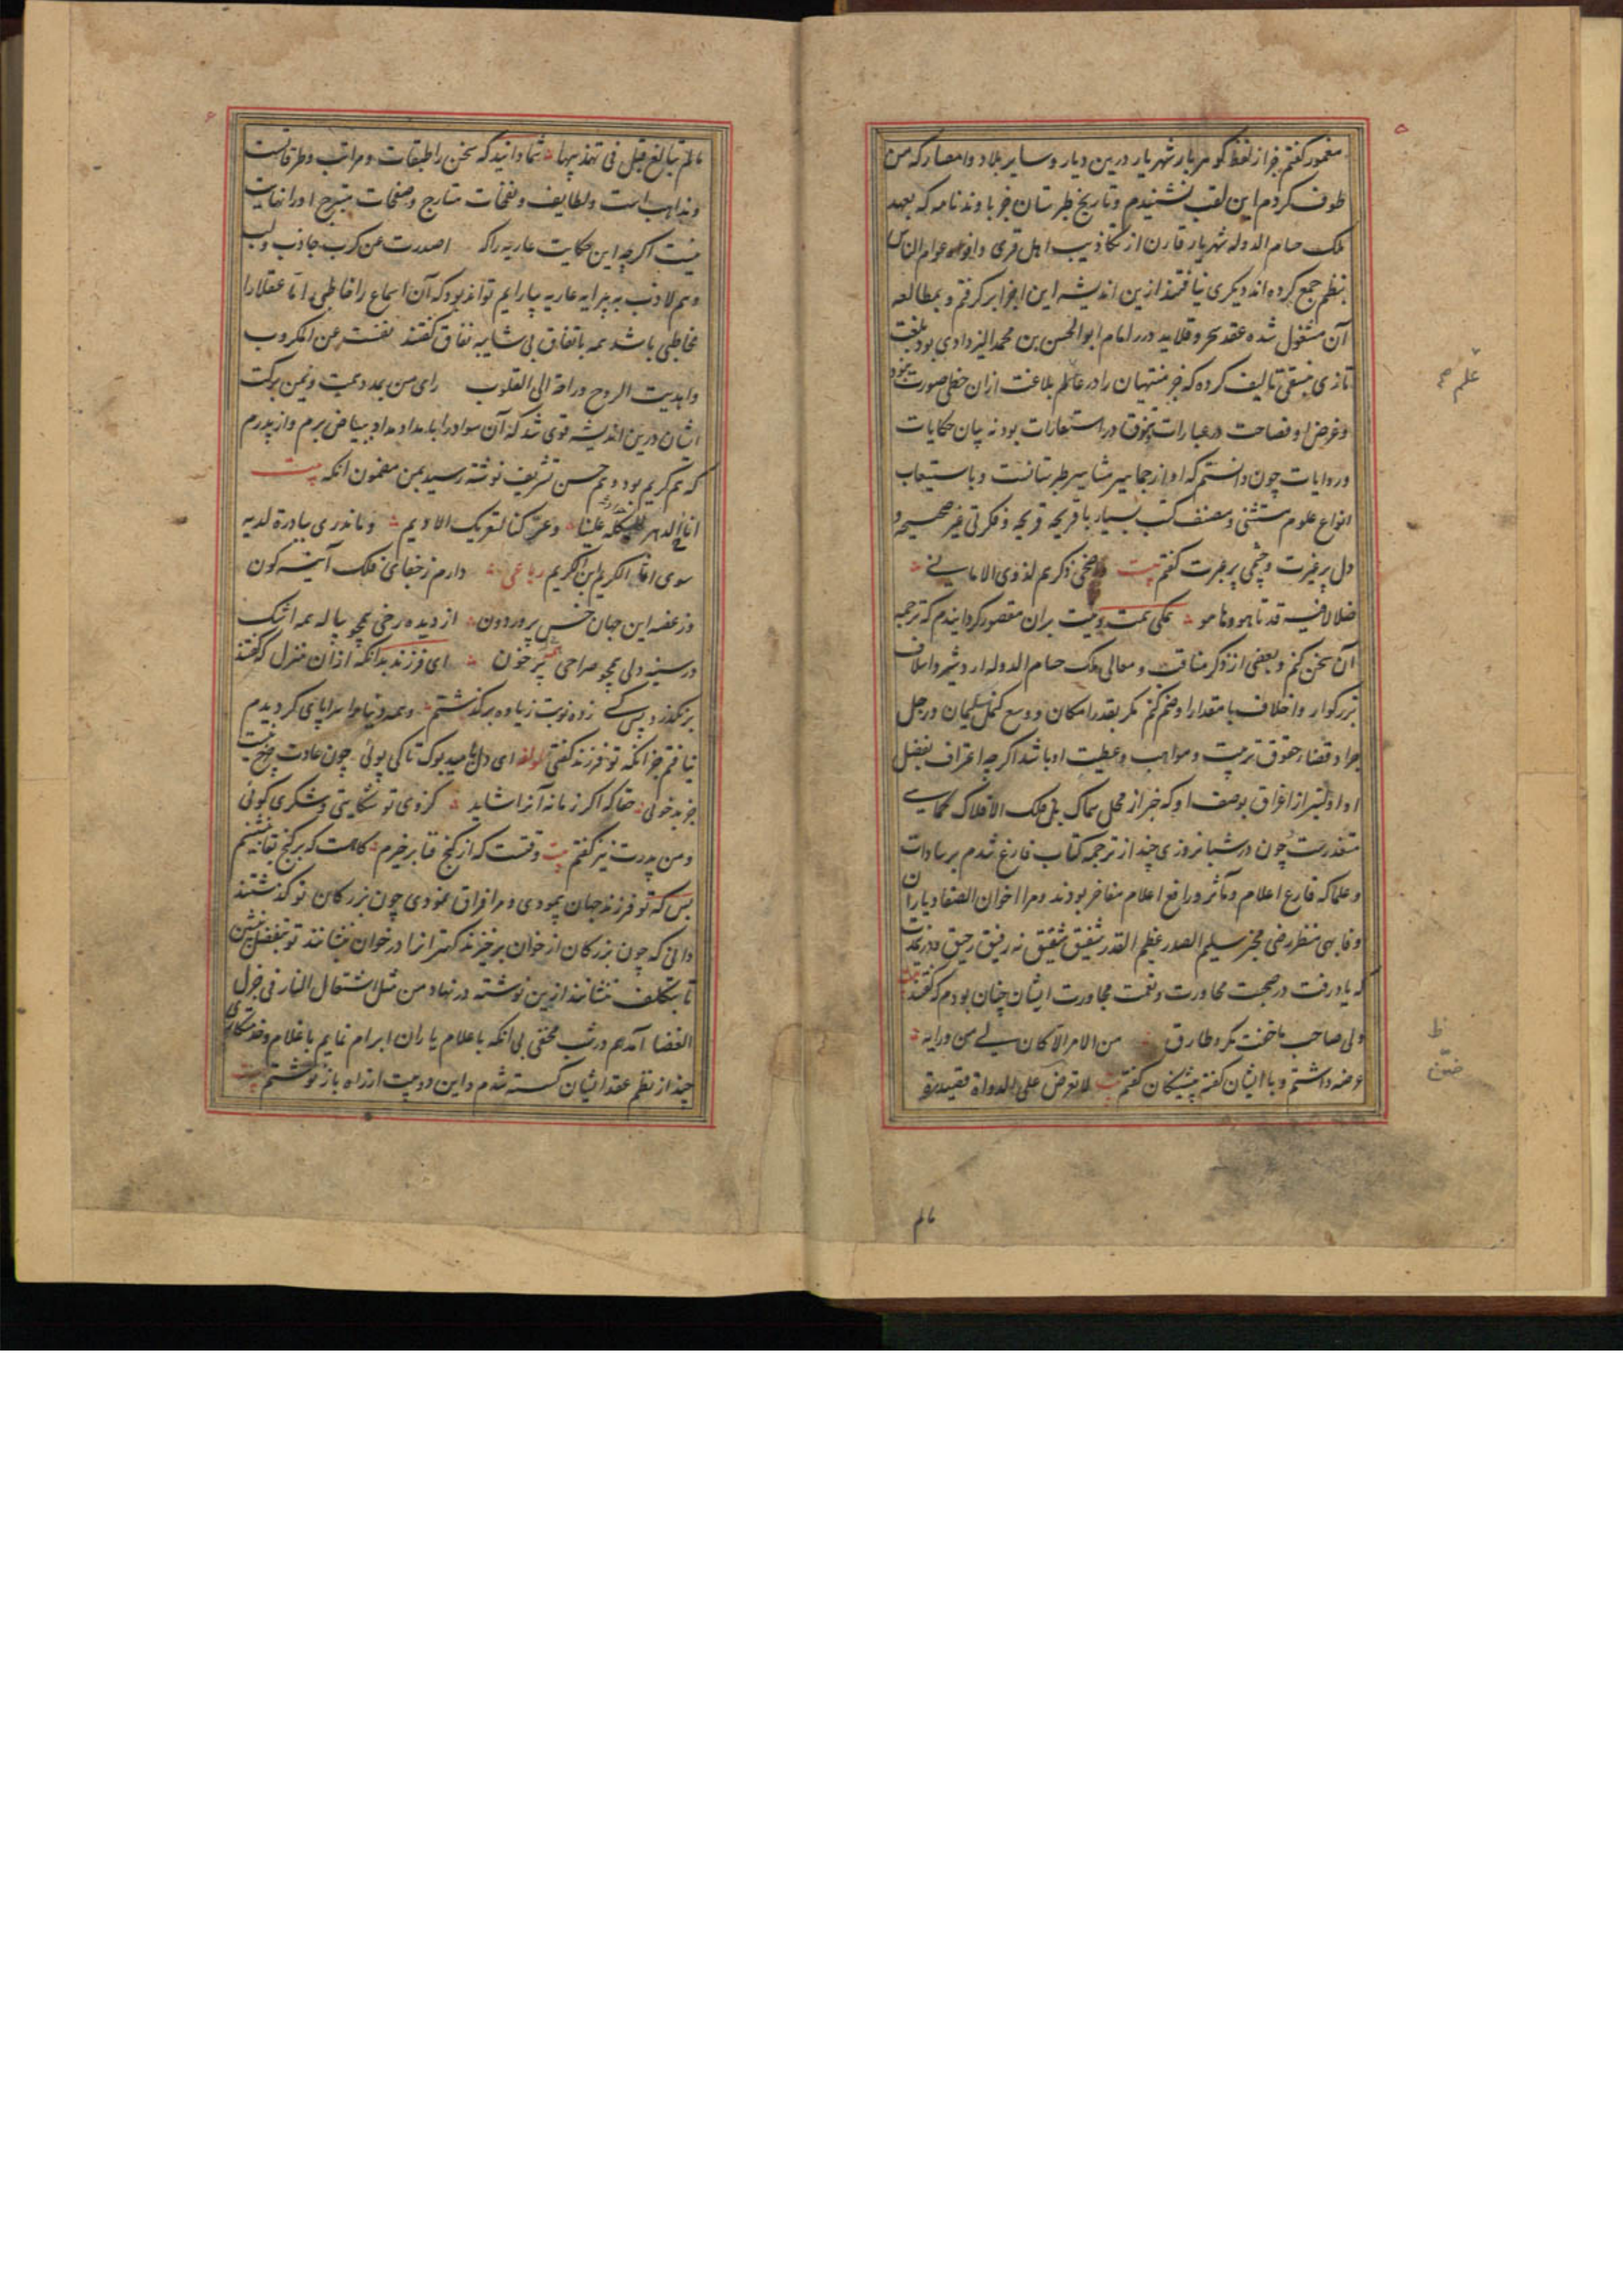 مغمور گفتم جز از لفظ گوهربار شهریار درین دیار و سایر بلاد و امصار که من
طوف کردم این لقب نشنیدم و تاریخ طبرستان جز باوندنامه که بعهد
ملک حسام الدوله شهریار قارن از تکاذیب اهل قری و افواه عوام الناس
بنظم جمع کرده اند دیگری نیافتند ازین اندیشه این اجزا برگرفتم و بمطالعه
آن مشغول شده عقد سحر و قلاید درر امام ابوالحسن بن محمد الیزدادی بود بلغت
تازی منسقی تالیف کرده که جز منتهیان را در عالم بلاغت ازان حظی صورت نبود
و غرض او فصاحت در عبارات و تنوق در استعارات بود نه بیان حکایات
و روایات چون دانستم که او از جماهیر مشاهیر طبرستانست و باستیعاب
انواع علوم مستثنی و مصنف کتب بسیار با قریحه قریحه و فکرتی غیر صحیحه و
دل پر غیرت و چشمی پر عبرت گفتم بیت ذکریم لذوی الامانی
ضلالا فیه قد تاهوا و ماهوا همگی همت و نیت بران مقصور گردانیدم که ترجمه
آن سخن کنم و بعضی از ذکر مناقب و معالی ملک حسام الدوله اردشیر و اسلاف
بزرگوار و اخلاف با مقدار او ضم کنم مگر بقدر امکان و وسع کنمل سلیمان و رجل
جراد قضاء حقوق تربیت و مواهب و عطیت او باشد اگرچه اعتراف بفضل
او اولیتر از اغراق بوصف او که خبر از محل سماک بل فلک الافلاک کماهی
متعذرست چون در شبانروزی چند از ترجمه کتاب فارغ شدم بر سادات
و علما که فارع اعلام و مآثر و رافع اعلام مفاخر بودند و مرا اخوان الصفا و یاران
وفا بهی منظر رضی مخبر سلیم الصدر عظیم القدر شفیق شقیق نه رفیق رحیق
که یاد رفت در صحبت محاورت و نعمت مجاورت ایشان چنان بودم که گفتند بیت
ولی صاحب ما خفت مکر و طارق من الامر الا کان لی من ورایه
عرضه داشتم و با ایشان گفته پیشینگان گفتم بیت لا تعرضن علی الرواة قصیدة
مالم
مالم تبالغ قبل فی تهذیبها شما دانید که سخن را طبقات و مراتب و طرقات
و مذاهب است و لطایف و نفحات متارج و صفحات متبرج او را نهایت
نیست اگرچه این حکایت عاریه را که اصدرت عن کرب جاذب ولب
وهم لاذب به پیرایه عاریه بیارایم تواند بود که آن اسماع را خاطی اما عقلا را
مخاطبی باشد همه باتفاق بی شایبه نفاق گفتند نفست عن المکروب
و اهدیت الروح و راحة الی القلوب رای من بمدد همت و یمن برکت
ایشان درین اندیشه قوی شد که آن سواد را بامداد مداد ببیاض برم و از پدرم
که هم کریم بود و هم حسن تشریف نوشته رسید بمن مضمون آنکه بیت
اناخ الدهر کلکله علینا وعر کنا لتعریک الادیم وما ندری بادرة لدیه
سوی افتاء الکریم ابن الکریم رباعی دارم ز جفای فلک آینه گون
وز غصه این جهان خس پرور دون از دیده رخی همچو پیاله همه اشک
در سینه دلی همچو صراحی همه پر خون ای فرزند بدانکه ازان منزل که گفتند
برنگذرد پس کسی زده نوبت زیاده برگذشتم و همه دنیا را سراپای گردیدم
نیافتم جز آنکه تو فرزند گفتی لمولفه ای دل بامید بوک تا کی پوئی چون عادت چرخ نیست
جز بدخوئی حقا که اگر زمانه آنرا شاید کزوی تو شکایتی و شکری گوئی
و من پدرت نیز گفتم بیت وقتست که از کنج فنا برخیزم گاهست که بر گنج بقا بنشینم
بس که تو فرزند جهان پیمودی و مرا فراق نمودی چون بزرگان تو گذشتند
دانی که چون بزرگان از خوان برخیزند کهترانرا در خوان بنشانند تو بفضل بنشین
تا بتکلف ننشانند ازین نوشته در نهاد من مثل اشتعال النار فی جزل
الغضا آمد هم در شب مختفی بی آنکه باعلام یاران ابرام نمایم با غلام و خدمتکاری
چند از نظم عقد ایشان گسسته شدم و این دو بیت از راه باز نوشتم بیت
علم صح
ظ